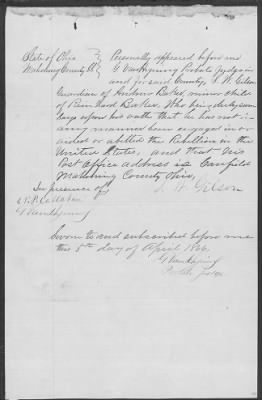 State of Ohio } Personally appeared before me
Mahoning County SS } G Van Hyning Probate Judge in
and for said County, S. W. Gilson
Guardian of Andrew Baker, minor child
of Reinhard Baker, Who being duly sworn
says upon his oath that he has not in
any manner been engaged in or
aided or abetted the Rebellion in the
United States, and that his
Post Office address is Canfield
Mahoning County Ohio,
In presence of S. W. Gilson
G Van Hyning
Sworn to and subscribed before me
this 5th day of April 1866.
G Van Hyning
Probate Judge